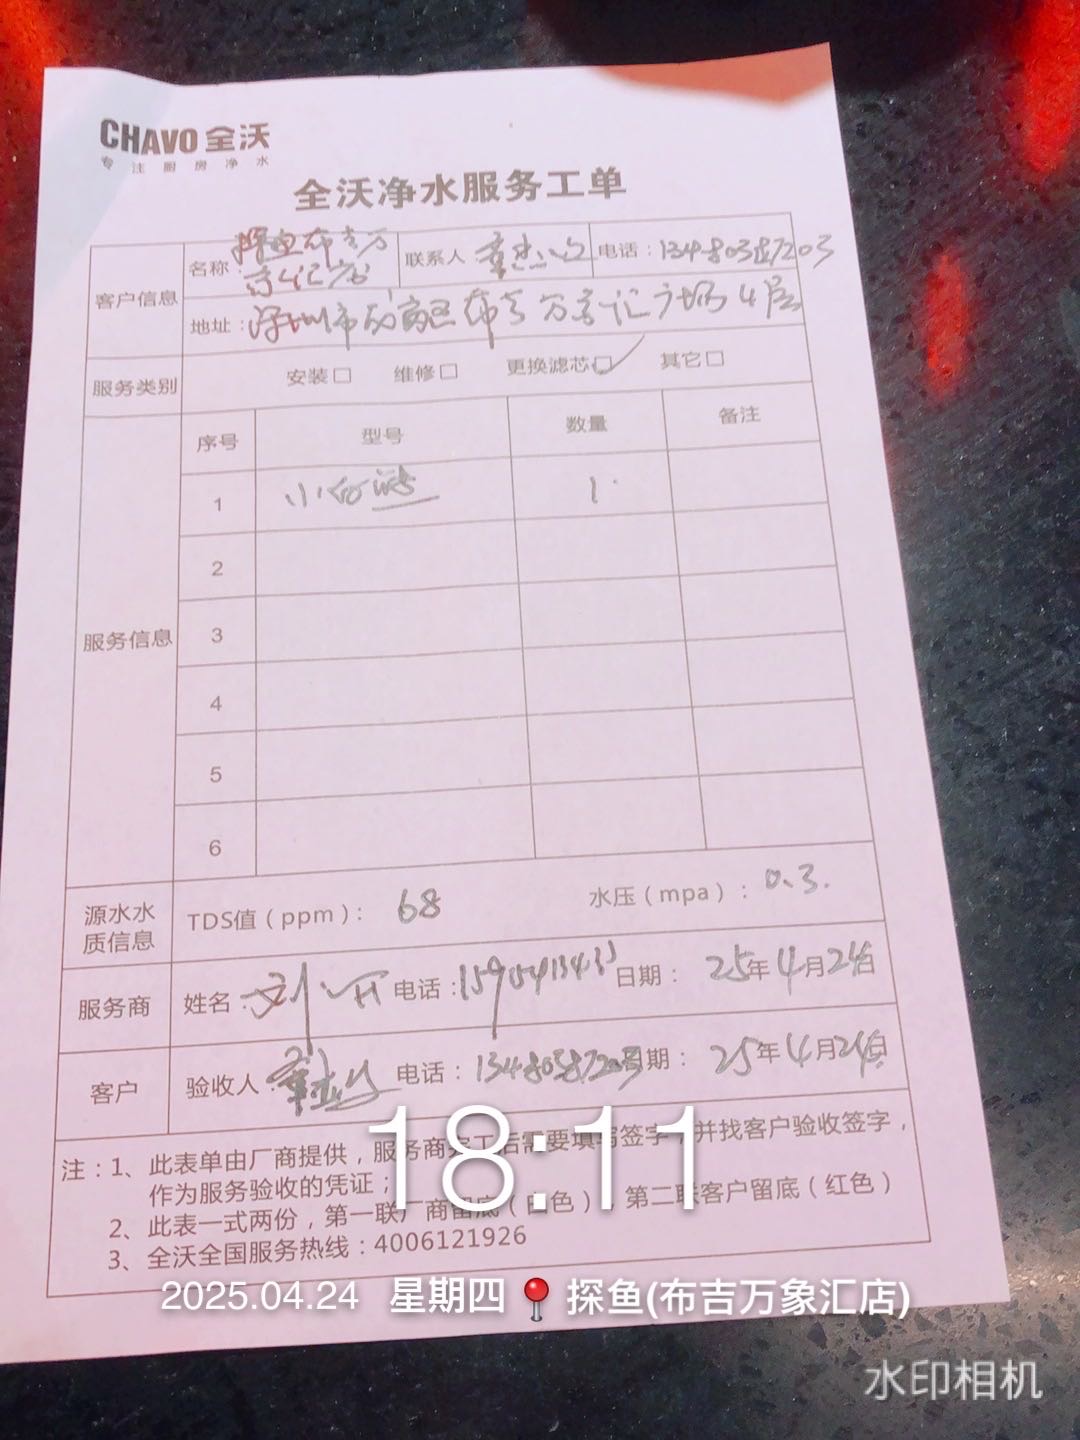 CHAVO 全沃
专注厨房净水
全沃净水服务工单
客户信息 名称：探鱼布吉万象汇店 联系人 电话：13480387203
地址：深圳市龙岗区布吉万象汇广场4层
服务类别 安装□ 维修□ 更换滤芯☑ 其它□
服务信息 序号 型号 数量 备注
1 小白 1
2
3
4
5
6
源水水质信息 TDS值（ppm）：68 水压（mpa）：0.3.
服务商 姓名： 电话： 日期：25年4月24日
客户 验收人： 电话：13480387203 日期：25年4月24日
注：1、此表单由厂商提供，服务商完工后需要填写签字，并找客户验收签字，
作为服务验收的凭证；
2、此表一式两份，第一联厂商留底（白色），第二联客户留底（红色）
3、全沃全国服务热线：4006121926
18:11
2025.04.24 星期四 探鱼(布吉万象汇店)
水印相机